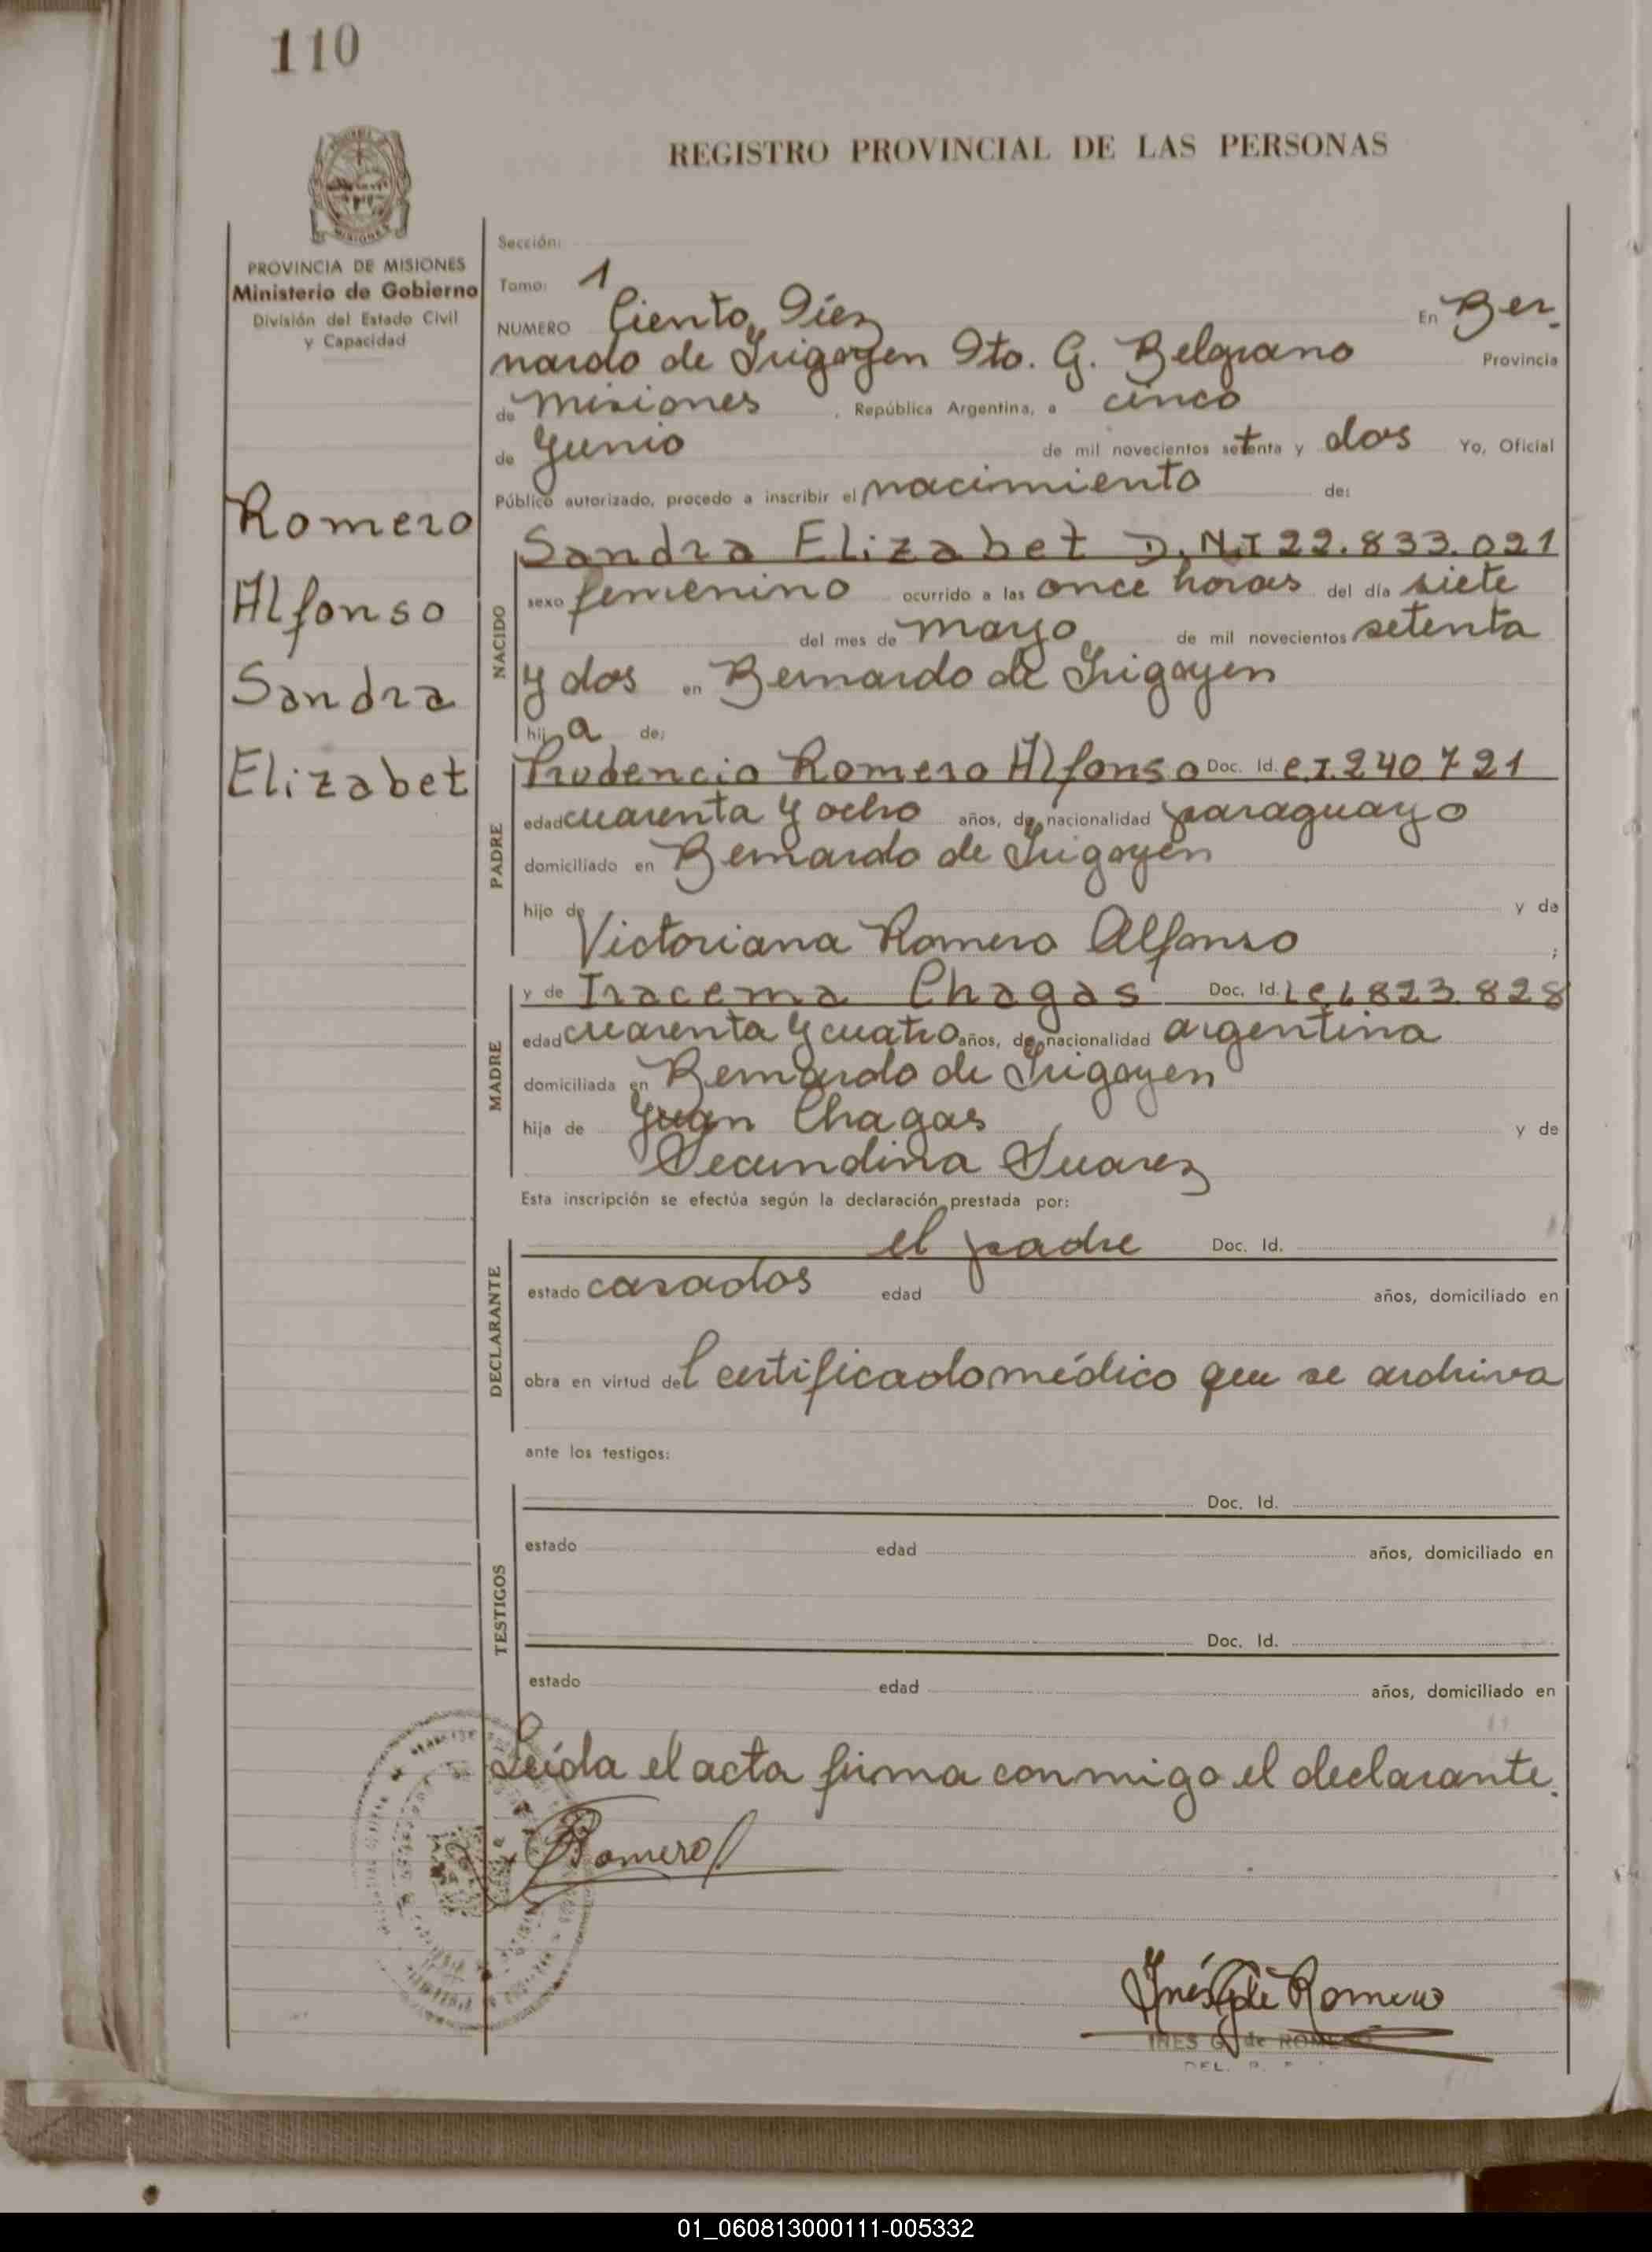 110
REGISTRO PROVINCIAL DE LAS PERSONAS
MISIONES
PROVINCIA DE MISIONES
Ministerio de Gobierno
División del Estado Civil
y Capacidad
Romero
Alfonso
Sandra
Elizabet
Sección:
Tomo: 1
NUMERO Ciento Diez En Ber-
nardo de Irigoyen Dto. G. Belgrano Provincia
de Misiones, República Argentina, a cinco
de Junio de mil novecientos setenta y dos Yo, Oficial
Público autorizado, procedo a inscribir el nacimiento de:
NACIDO
Sandra Elizabet D.N.I 22.833.021
sexo femenino ocurrido a las once horas del día siete
del mes de mayo de mil novecientos setenta
y dos en Bernardo de Irigoyen
hija de:
PADRE
Prudencio Romero Alfonso Doc. Id. C.I. 240721
edad cuarenta y ocho años, de nacionalidad paraguayo
domiciliado en Bernardo de Irigoyen
hijo de y de
Victoriana Romero Alfonso ;
MADRE
y de Iracema Chagas Doc. Id. 823.828
edad cuarenta y cuatro años, de nacionalidad argentina
domiciliada en Bernardo de Irigoyen
hija de Juan Chagas y de
Secundina Suarez
Esta inscripción se efectúa según la declaración prestada por:
DECLARANTE
el padre Doc. Id.
estado casados edad años, domiciliado en
obra en virtud del certificado médico que se archiva
ante los testigos:
TESTIGOS
Doc. Id.
estado edad años, domiciliado en
Doc. Id.
estado edad años, domiciliado en
Leída el acta firma conmigo el declarante.
Romero
Inés G. de Romero
INES G. de ROMERO
DEL.
01_060813000111-005332